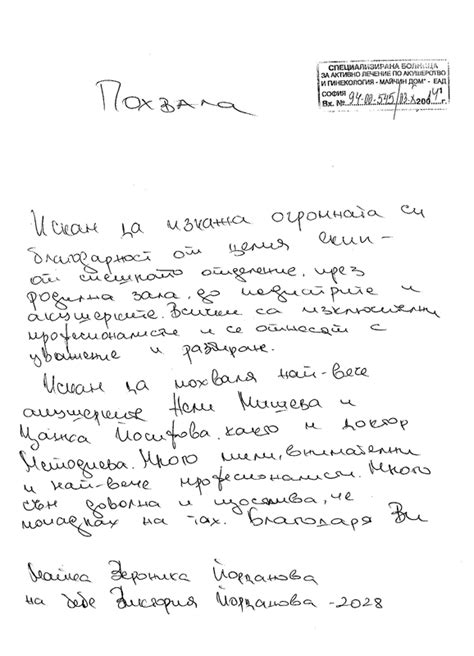 СПЕЦИАЛИЗИРАНА БОЛНИЦА
ЗА АКТИВНО ЛЕЧЕНИЕ ПО АКУШЕРСТВО
И ГИНЕКОЛОГИЯ - "МАЙЧИН ДОМ" - ЕАД
СОФИЯ
Вх. № 94-00-545/03.X 2014 г.
Похвала
Искам да изкажа огромната си
благодарност от целия екип -
от спешното отделение, през
родилна зала, до педиатрите и
акушерките. Всички са изключителни
професионалисти и се отнасят с
уважение и разбиране.
Искам да похваля най-вече
акушерките Нели Мишева и
Цанка Йосифова, както и доктор
Методиева. Много мили, внимателни
и най-вече професионалисти. Много
съм доволна и щастлива, че
попаднах на тях. Благодаря Ви
Майка Вероника Йорданова
на бебе Виктория Йорданова - 2028